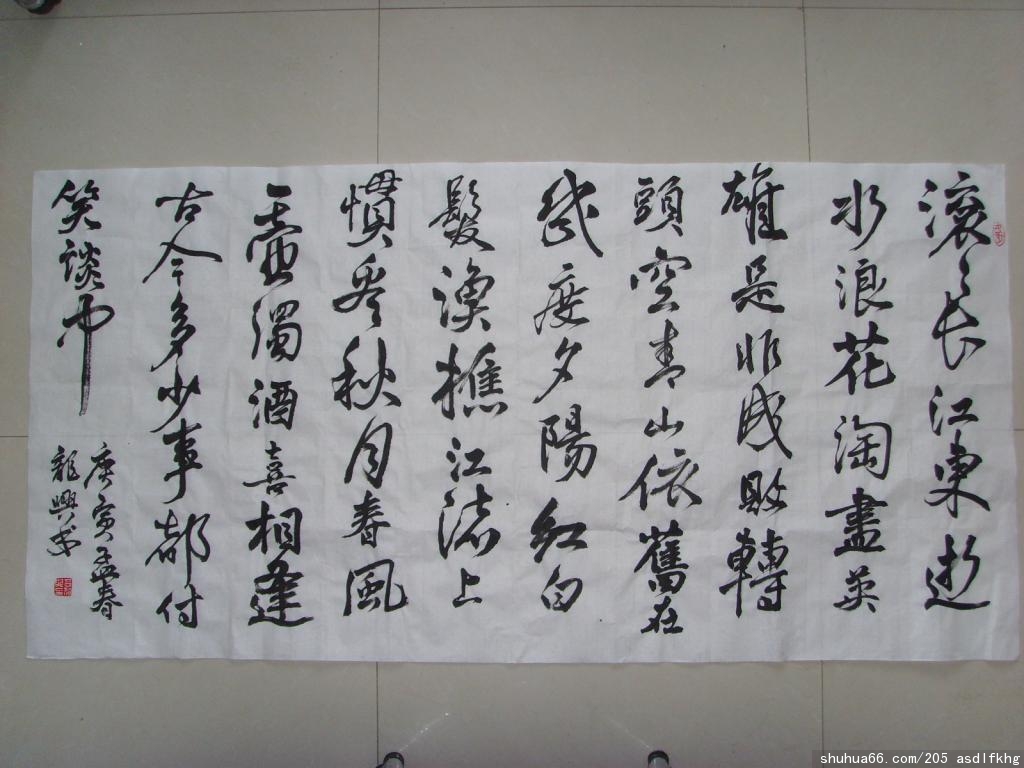 滚〻长江東逝
水浪花淘盡英
雄是非成敗轉
頭空青山依舊在
幾度夕陽紅白
髮漁樵江渚上
慣看秋月春風
一壺濁酒喜相逢
古今多少事都付
笑談中
庚寅孟春
龍興书
shuhua66.com/205 asdlfkhg